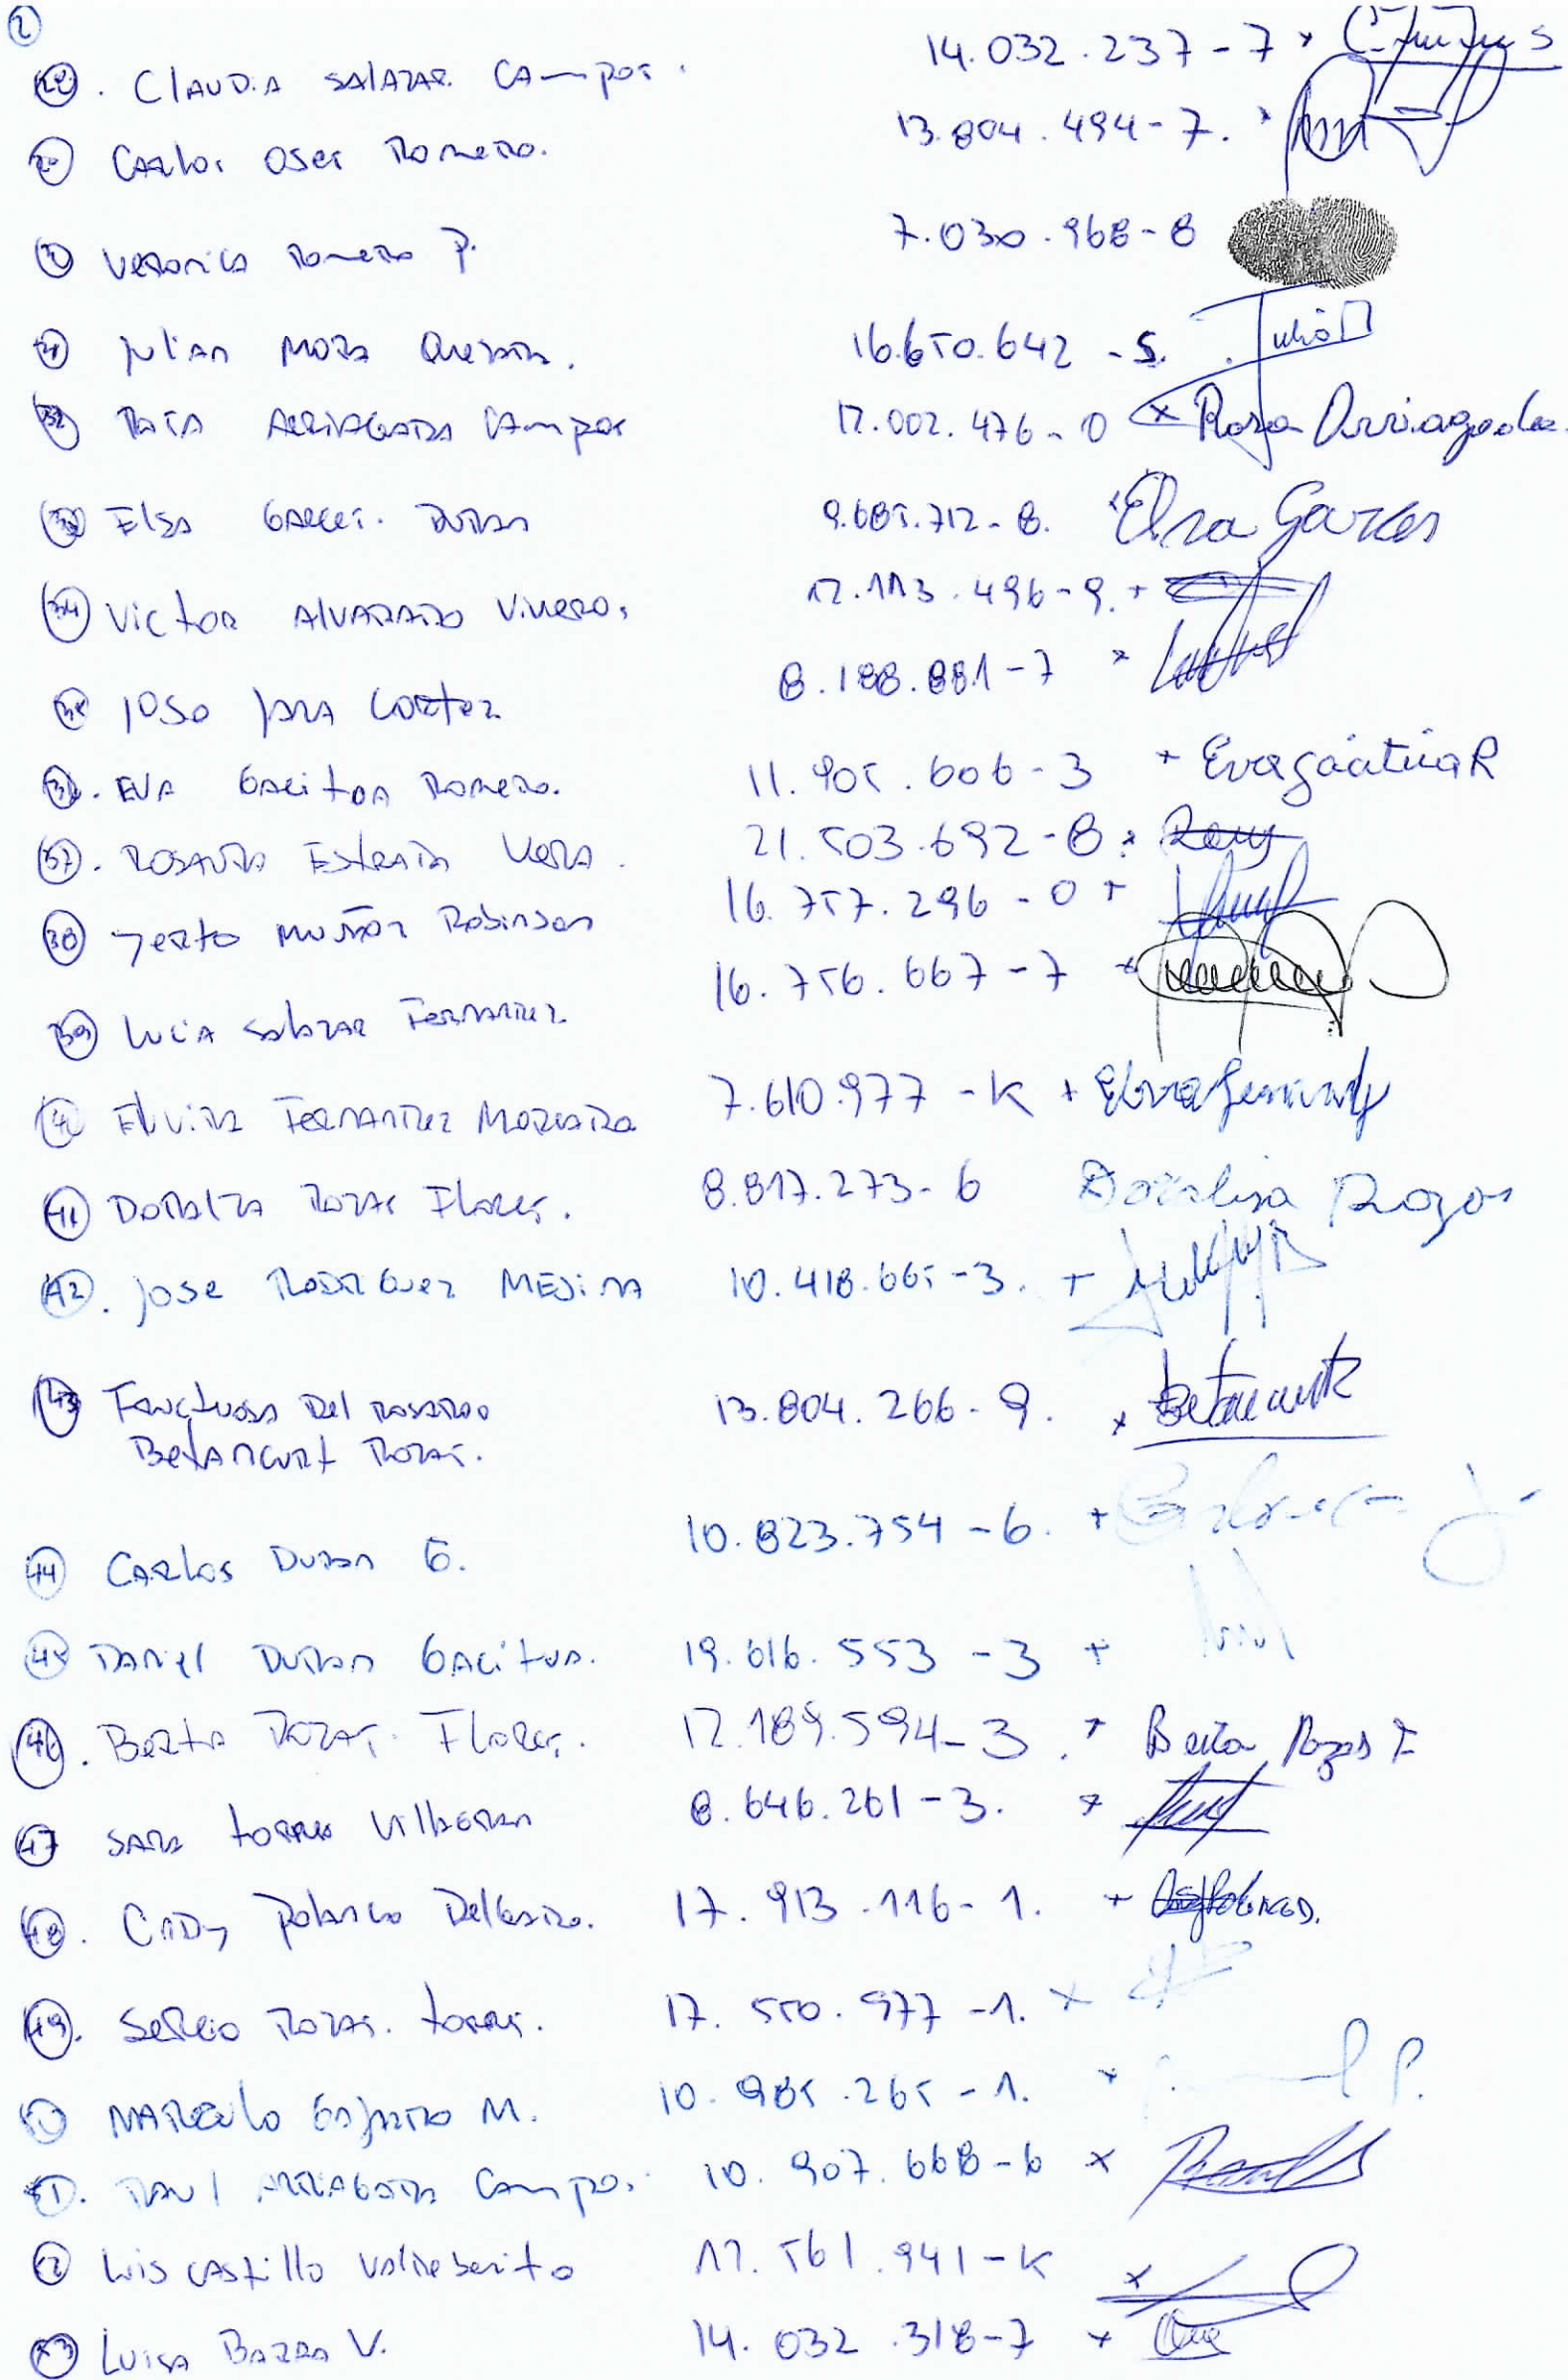 2
28. Claudia Salazar Campos. 14.032.237-7 x
29 Carlos Oses Romero. 13.804.494-7. x
30 Veronica Romero P. 7.030.968-8
31 Julian Mora Quezada. 16.650.642-5. Julio M
32 Rosa Arriagada Campos 12.002.476-0 x Rosa Arriagada
33 Elsa Garces. Duran 9.685.712-8. x Elsa Garces
34 Victor Alvarado Vivero. 12.113.496-9. +
35 Joso Jara Cortez 8.188.881-7 x
36. Eva Gacitua Romero. 11.905.606-3 + Eva gacitua R
37. Rosauda Estrada Vera. 21.503.692-8. x
38 Jerto Muñoz Robinson 16.757.296-0 +
39 Lucia Salazar Fernandez 16.756.667-7 +
40 Elvira Fernandez Moreaida 7.610.977-K +
41 Doraliza Rozas Flores. 8.817.273-6 Doralisa Rozas
42. Jose Rodriguez Medina 10.418.665-3. +
43 Fructuosa Del Rosario 13.804.266-9. x Betancurt
Betancurt Rozas.
44 Carlos Duran G. 10.823.754-6. +
45 Daniel Duran Gacitua. 19.616.553-3 +
46. Berta Rozas. Flores. 12.189.594-3. + Berta Rozas F
47 Sara Torres Villagran 8.646.261-3. x
48. Cindy Polanco Delgado. 17.913.116-1. + Polanco D.
49. Sergio Rozas. Torres. 17.550.977-1. x
50 Marcelo Gajardo M. 10.985.265-1. x
51. Raul Arriagada Campos. 10.907.668-6 x
52 Luis Castillo Valdebenito 17.561.941-K x
53 Luisa Bazra V. 14.032.318-7 x